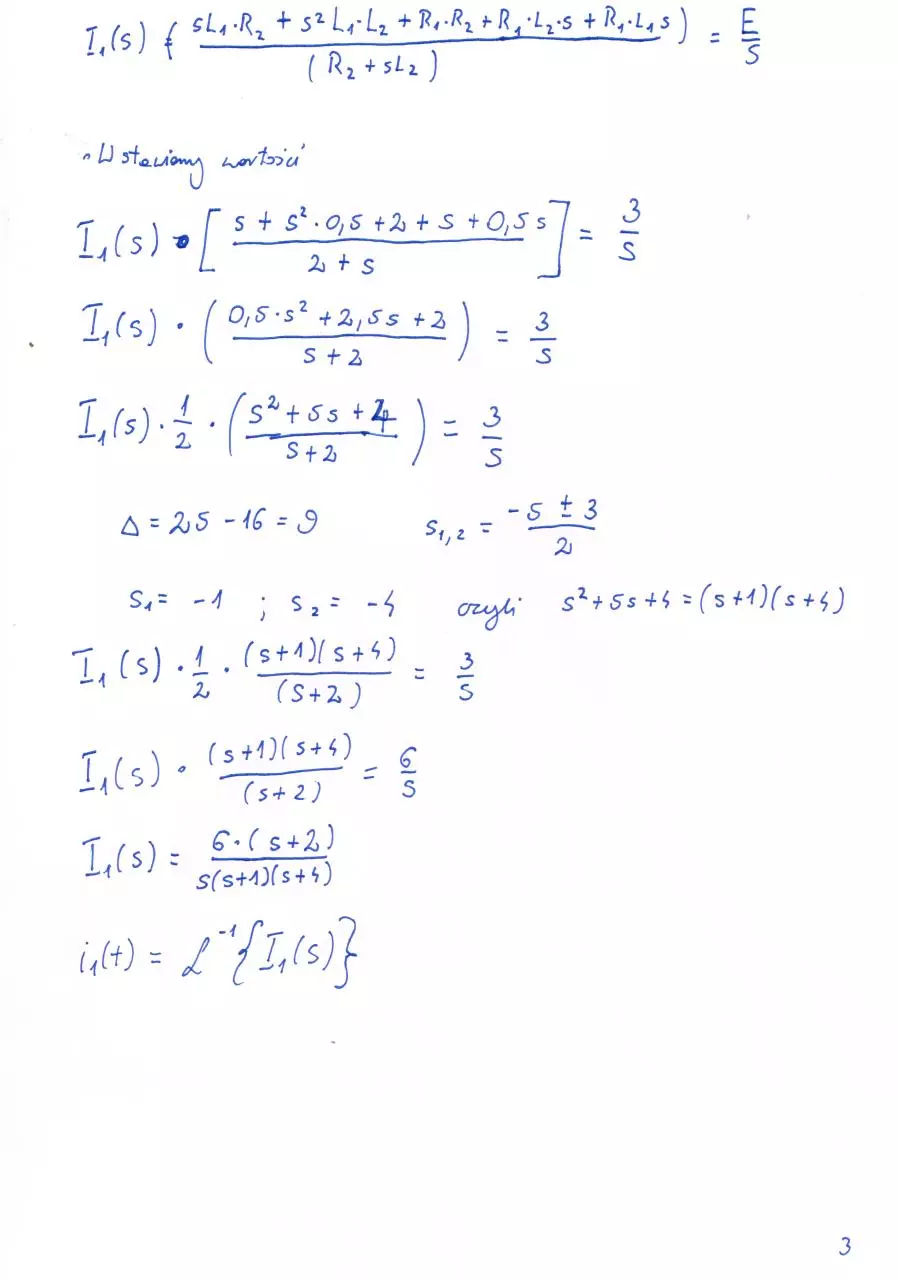 I₁(s) { (sL₁·R₂ + s²L₁·L₂ + R₁·R₂ + R₁·L₂·s + R₁·L₁s) / (R₂ + sL₂) ) = E/s
Wstawiamy wartości
I₁(s) · [ (s + s²·0,5 + 2 + s + 0,5s) / (2 + s) ] = 3/s
I₁(s) · ( (0,5·s² + 2,5s + 2) / (s + 2) ) = 3/s
I₁(s) · 1/2 · ( (s² + 5s + 4) / (s + 2) ) = 3/s
Δ = 25 - 16 = 9 s₁,₂ = (-5 ± 3) / 2
s₁ = -1 ; s₂ = -4 czyli s² + 5s + 4 = (s+1)(s+4)
I₁(s) · 1/2 · (s+1)(s+4) / (s+2) = 3/s
I₁(s) · (s+1)(s+4) / (s+2) = 6/s
I₁(s) = 6·(s+2) / s(s+1)(s+4)
i₁(t) = ℒ⁻¹{I₁(s)}
3